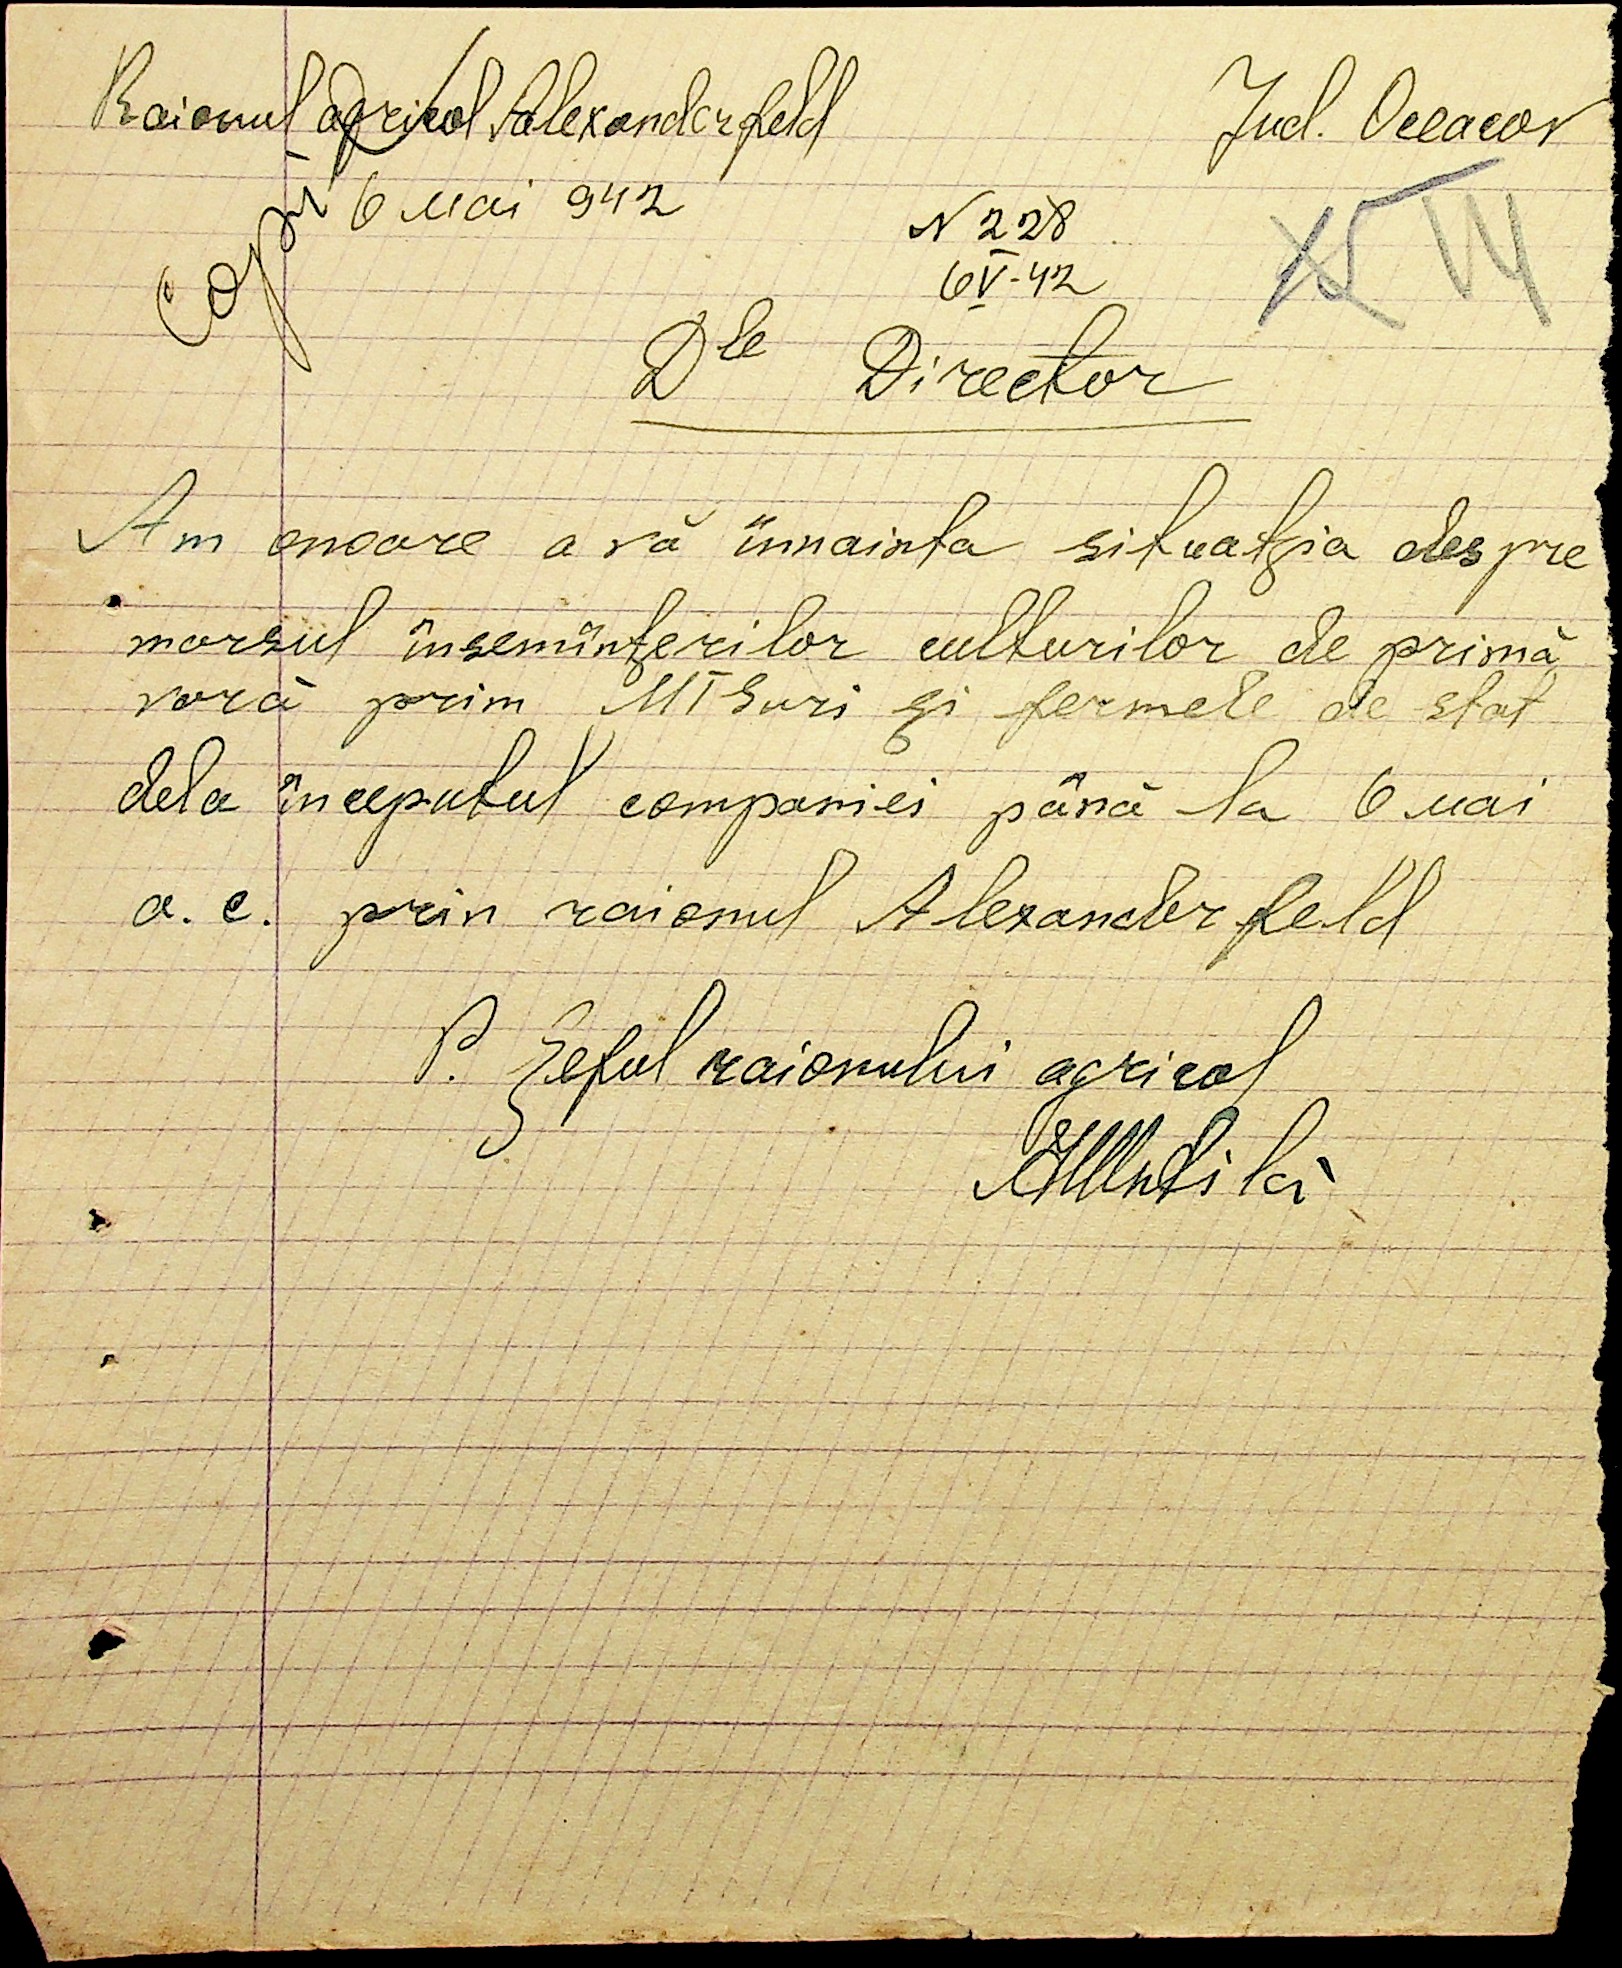 Raionul agricol Alexanderfeld Jud. Oceacov
6 Mai 942
Copie
N 228
6 V-42
Dle Director
Am onoare a vă înnainta situația despre
morsul însemînțerilor culturilor de primă
vară prim MTSuri și fermele de stat
dela începutul companiei până la 6 Mai
a. c. prin raionul Alexanderfeld
P. Șeful raionului agricol